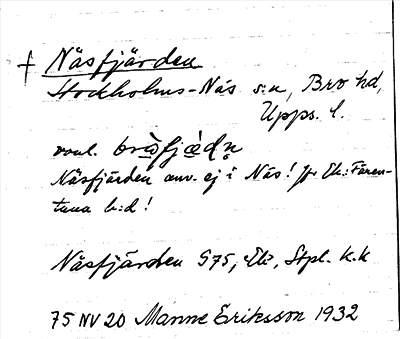 † Näsfjärden
Stockholms-Näs s:n, Bro hd,
Upps. l.
vanl.
Näsfjärden anv. ej i Näs! Jfr Ek: Fären-
tuna h:d!
Näsfjärden S75, Ek, Stpl. K.K
75 NV 20 Manne Eriksson 1932